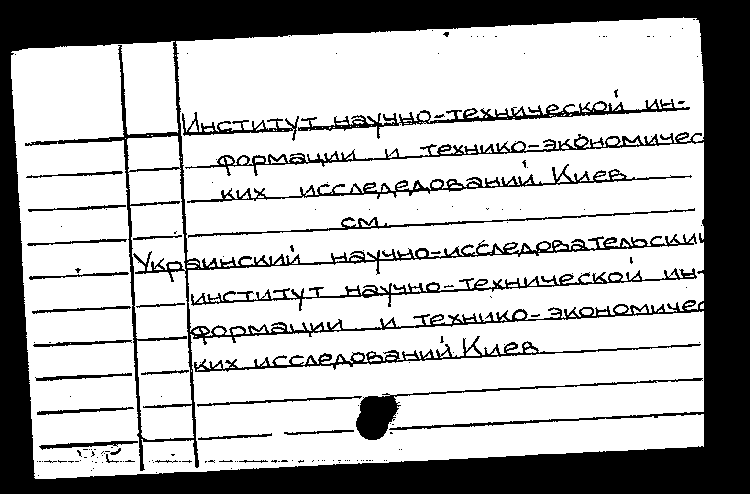 Институт научно-технической ин-
формации и технико-экономичес
ких исследедований. Киев.
см.
Украинский научно-исследовательский
институт научно-технической ин-
формации и технико-экономичес
ких исследований. Киев.